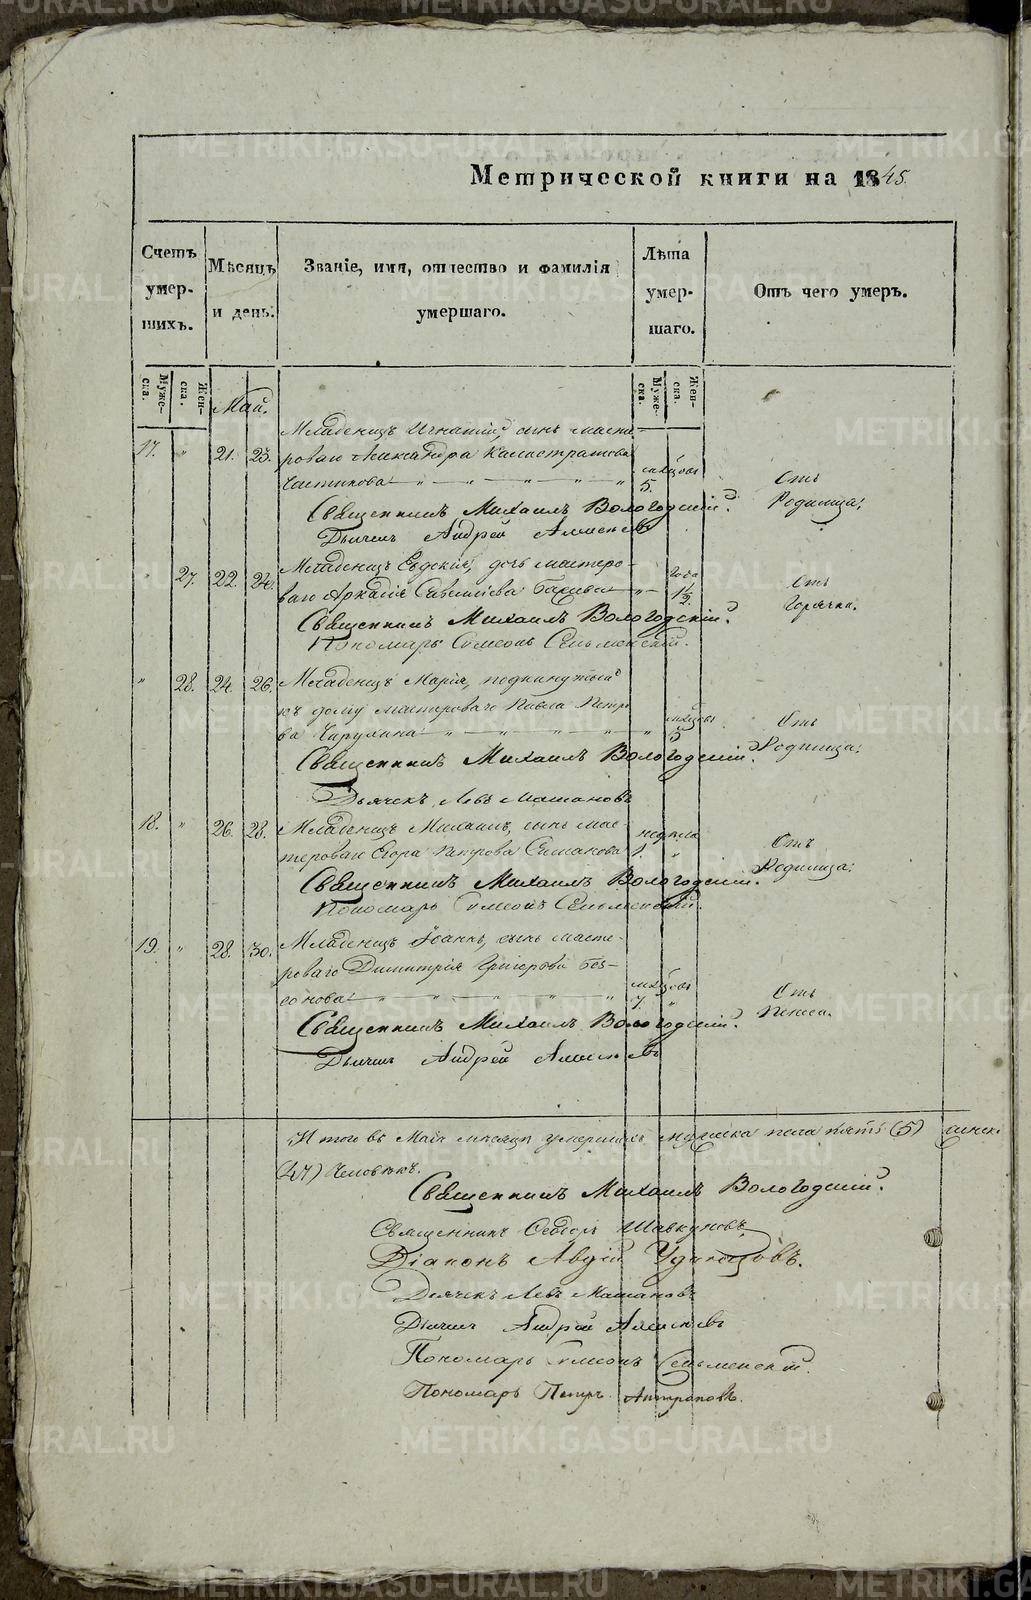 Метрической книги на 1845.
Счетъ умершихъ.
Мѣсяцъ и день.
Званіе, имя, отчество и фамилія умершаго.
Лѣта умершаго.
Отъ чего умеръ.
Мужеска.
Женска.
Мужеска.
Женска.
Май.
Младенецъ Игнатій, сынъ масте-
17. " 21. 23. роваго Александра Калистратова
мѣсяцовъ
5.
Отъ
Родимца.
Священникъ Михаилъ Вологодскій.
Дьячекъ Андрей Алексѣевъ
Младенецъ Евдокія, дочь мастеро-
" 27. 22. 24. ваго Аркадія Савельева
года
1½.
Отъ
Горячки.
Священникъ Михаилъ Вологодскій.
Пономарь Симеонъ Сельменскій.
" 28. 24. 26. Младенецъ Марія, подкинутый
къ дому мастероваго Павла Петро-
ва Чарухина
мѣсяцовъ
5
Отъ
Родимца.
Священникъ Михаилъ Вологодскій.
Дьячекъ Левъ Машановъ
18. " 26. 28. Младенецъ Михаилъ, сынъ мас-
тероваго Егора Петрова Симакова
недѣля
1. "
Отъ
Родимца.
Священникъ Михаилъ Вологодскій.
Пономарь Симеонъ Сельменскій.
19. " 28. 30. Младенецъ Іоаннъ, сынъ масте-
роваго Димитрія Григорьева Без-
сонова
мѣсяцовъ
7. "
Отъ
Поноса.
Священникъ Михаилъ Вологодскій.
Дьячекъ Андрей Алексѣевъ
Итого въ Маѣ мѣсяцѣ умершихъ мужеска пола пять (5) женск
Человѣкъ.
Священникъ Михаилъ Вологодскій.
Священникъ Ѳедоръ Шавкуновъ
Діаконъ Авдій Удинцовъ.
Дьячекъ Левъ Машановъ
Дьячекъ Андрей Алексѣевъ
Пономарь Симеонъ Сельменскій.
Пономарь Петръ Антроповъ.
METRIKI.GASO-URAL.RU